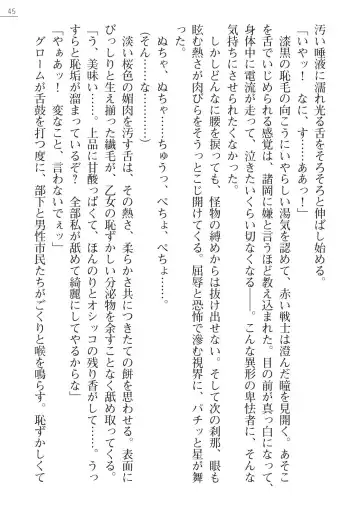 45
汚い唾液に濡れ光る舌をそろそろと伸ばし始める。
「いやッ!　なに、す……ああっ!」
漆黒の恥毛の向こうにいやらしい湯気を認めて、赤い戦士は澄んだ瞳を見開く。あそこ
を舌でいじられる感覚は、諸岡に嫌と言うほど教え込まれた。目の前が真っ白になって、
身体中に電流が走って、泣きたいくらい切なくなる――。こんな異形の卑怯者に、そんな
気持ちにさせられたくなかった。
しかしどんなに腰を捩っても、怪物の縛めからは抜け出せない。そして次の刹那、眼も
眩む熱さが肉びらをそうっとこじ開けてくる。屈辱と恐怖で滲む視界に、パチッと星が舞
った。
ぬちゃ、ぬちゃ……ちゅうっ、べちょ、べちょ……。
(そん……な…………)
淡い桜色の媚肉を汚す舌は、その熱さ、柔らかさ共につきたての餅を思わせる。表面に
びっしりと生え揃った繊毛が、乙女の恥ずかしい分泌物を余すことなく舐め取ってくる。
「う、美味い……。上品に甘酸っぱくて、ほんのりとオシッコの残り香がして……。うっ
すらと恥垢が溜まっているぞ?　全部私が舐めて綺麗にしてやるからな」
「やぁあッ!　変なこと、言わないでぇッ」
グロームが舌鼓を打つ度に、部下と男性市民たちがごくりと喉を鳴らす。恥ずかしくて